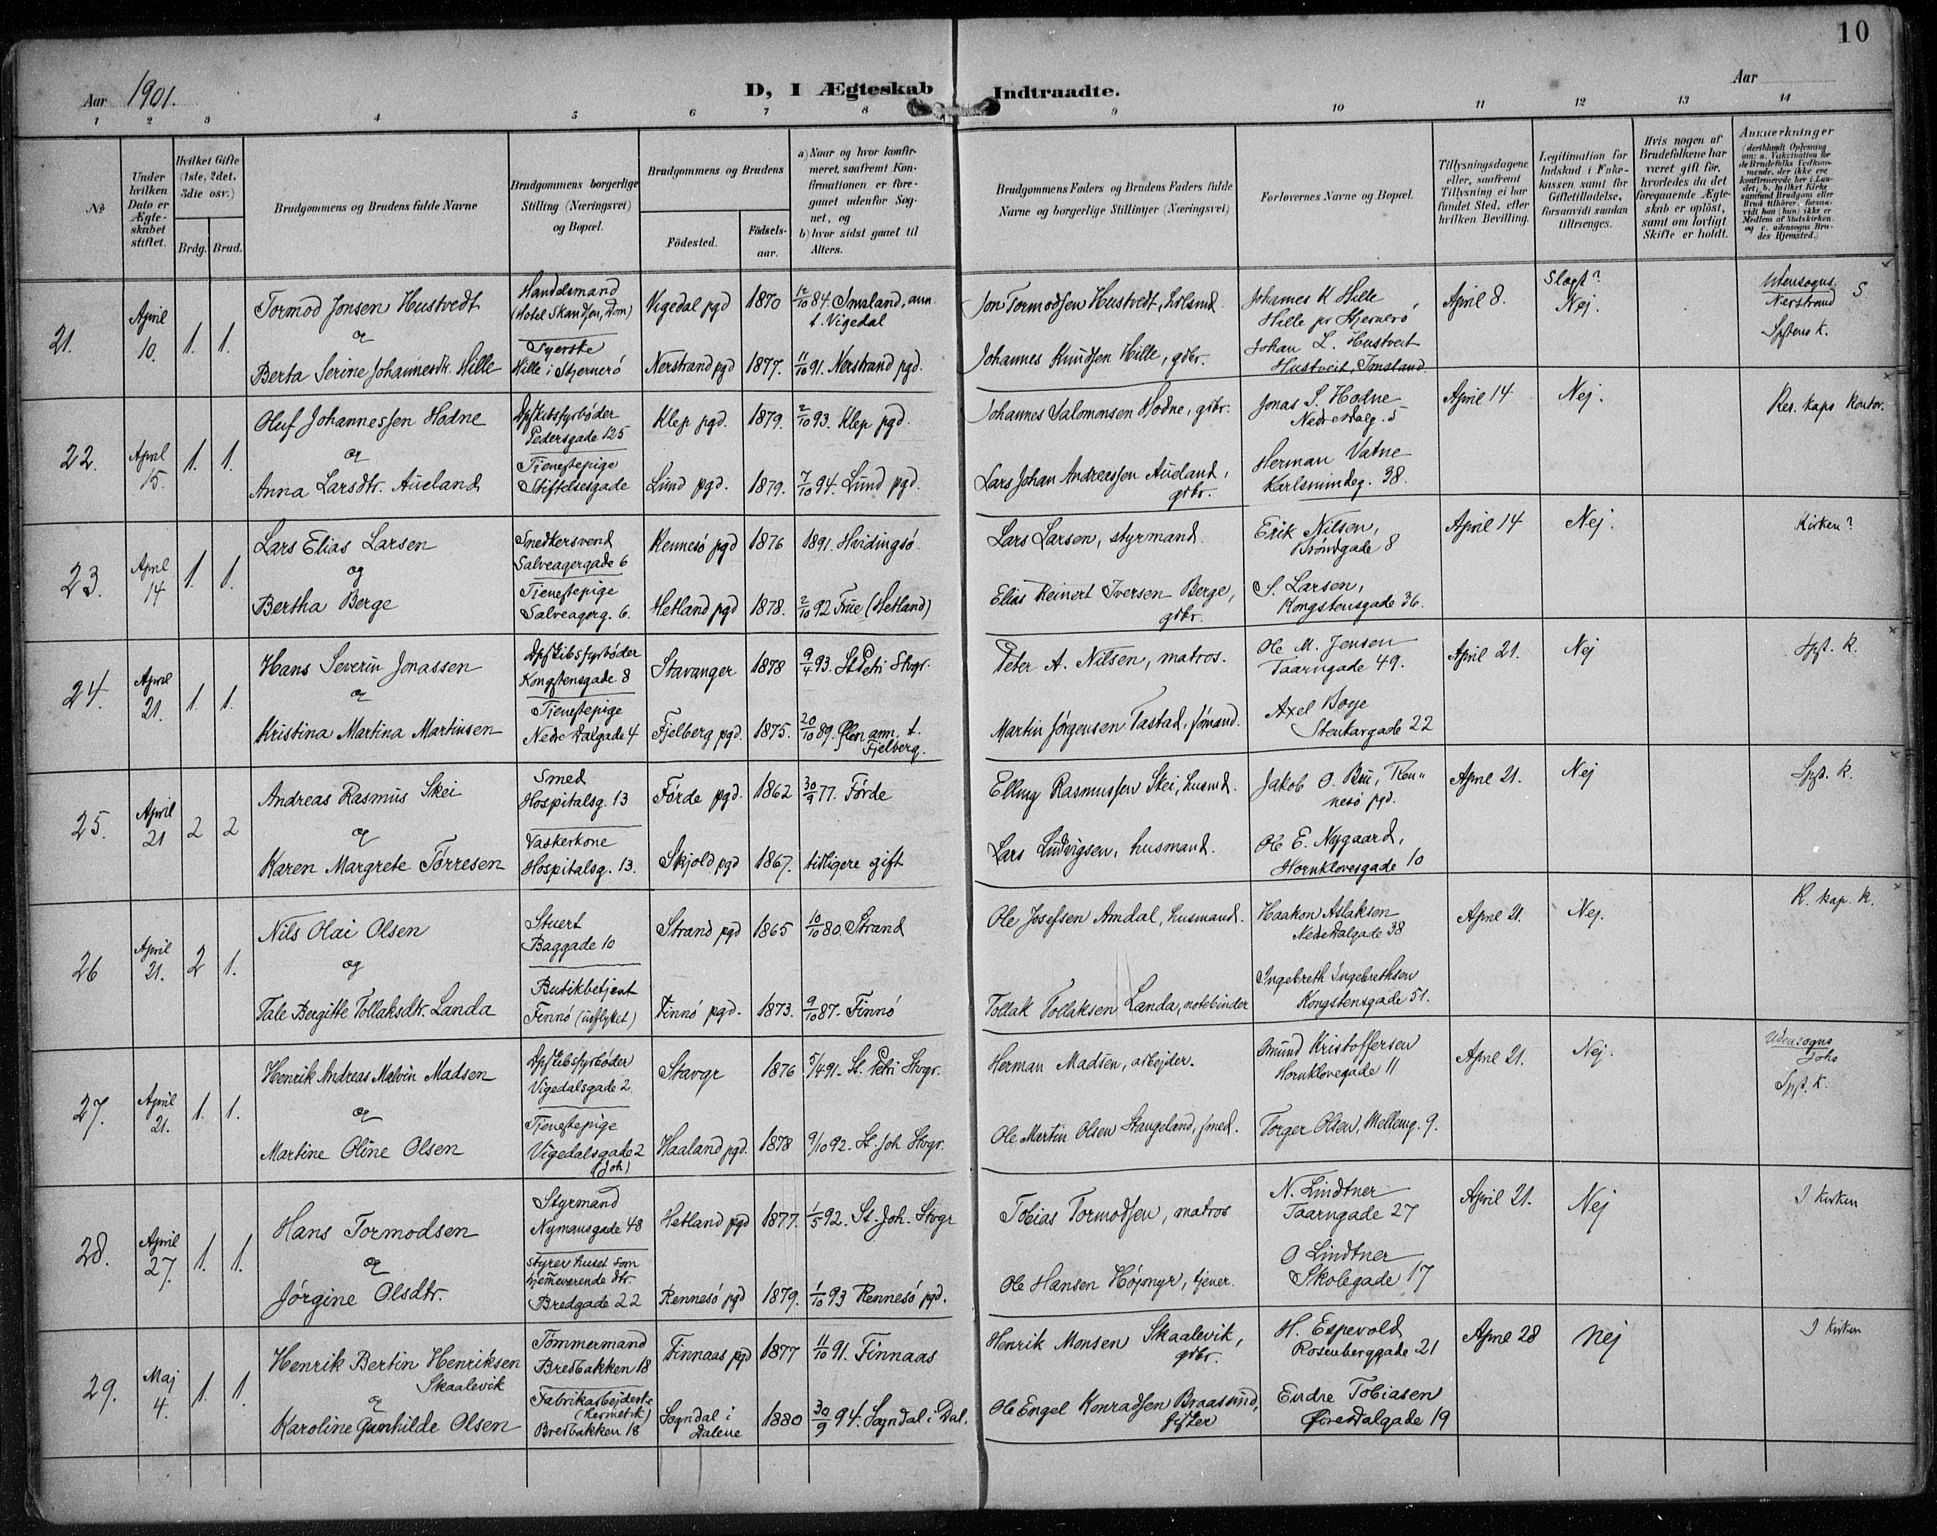 10
Aar 1901.
D, I Ægteskab Indtraadte.
Aar
1 2 3 4 5 6 7 8 9 10 11 12 13 14
No
Under hvilken Dato er Ægteskabet stiftet.
Hvilket Gifte (1ste, 2det, 3die osv.)
Brdg. Brud.
Brudgommens og Brudens fulde Navne
Brudgommens borgerlige Stilling (Næringsvei) og Bopæl.
Brudgommens og Brudens
Födested.
Födselsaar.
a) Naar og hvor konfirmeret, saafremt Konfirmationen er foregaaet udenfor Sognet, og
b) hvor sidst gaaet til Alters.
Brudgommens Faders og Brudens Faders fulde Navne og borgerlige Stillinger (Næringsvei)
Forlovernes Navne og Bopæl.
Tillysningsdagene eller, saafremt Tillysning ei har fundet Sted, efter hvilken Bevilling.
Legitimation for Indskud i Enkekassen samt for Giftetilladelse, forsaavidt saadan tiltrænges.
Hvis nogen af Brudefolkene har været gift før, hvorledes da det foregaaende Ægteskab er oplöst, samt om lovligt Skifte er holdt.
Anmerkninger (deriblandt Oplysning om: a. Vakcination for de Brudefolks Vedkommende, der ikke ere konfirmerede her i Landet; b. hvilket Kirkesamfund Brudgom eller Brud tilhører, forsaavidt han (hun) ikke er Medlem af Statskirken, og c. udensogns Brudes Hjemsted.)
21.
April 10.
1. 1.
Tormod Jonsen Hustvedt
og
Berta Serine Johannesdt. Hille
Handelsmand
(Hotel Skandien, Dom)
Syerske
Hille i Stjernerö
Vigedal pgd 1870 12/10 84 Imsland, ann. t. Vigedal
Nerstrand pgd 1877. 11/10 91. Nerstrand pgd.
Jon Tormodsen Hustvedt,
Johannes Knudsen Hille, gdbr.
Johannes K Hille
Hille pr Stjernerö
Johan L. Hustveit
Hustveit, Imsland.
April 8.
Slagt?
Nej.
Udensogns
Nerstrand S
Spstens K.
22.
April 15.
1. 1.
Oluf Johannessen Hodne
og
Anna Larsdtr. Aueland
Dpskibsfyrbøder
Pedersgade 125
Tjenestepige
Stiftelsesgade
Klep pgd. 1879. 2/10 93. Klep pgd.
Lund pgd. 1879. 7/10 94. Lund pgd.
Johannes Salomonsen Hodne, gdbr.
Lars Johan Andreassen Aueland, gdbr.
Jonas S. Hodne
Nedredalg. 5
Herman Vatne
Karlsmindeg. 38.
April 14
Nej.
Res. kaps kontor.
23.
April 14
1. 1.
Lars Elias Larsen
og
Bertha Berge
Snedkersvend
Salveagergade 6
Tjenestepige
Salveagerg. 6.
Rennesö pgd 1876 1891. Hvidingsö.
Hetland pgd 1878. 2/10 92 Frue (Hetland)
Lars Larsen, styrmand.
Elias Reinert Iversen Berge, gdbr.
Erik Nilsen,
Bröndgade 8
S. Larsen,
Kongstensgade 36.
April 14
Nej.
Kirken?
24.
April 21.
1. 1.
Hans Severin Jonassen
og
Kristina Martina Martinsen
Dpskibsfyrbøder
Kongstensgade 8
Tjenestepige
Nedre Dalgade 4
Stavanger 1878 9/4 93. St Petri Stvgr.
Fjelberg pgd. 1875. 20/10 89. Ølen ann. t. Fjelberg.
Peter A. Nilsen, matros.
Martin Jörgensen Tastad, sömand.
Ole M. Jensen
Taarngade 49.
Axel Boye
Stenkargade 22
April 21.
Nej
Spst. K.
25.
April 21
2 2
Andreas Rasmus Skei
og
Karen Margrete Törresen
Smed
Hospitalsg. 13
Vaskerkone
Hospitalsg. 13.
Förde pgd. 1862 30/9 77. Förde
Skjold pgd 1867. tidligere gift
Elling Rasmussen Skei, husmd.
Lars Ludvigsen, husmand.
Jakob O. Bru, Rennesö pgd.
Ole E. Nygaard,
Hornklovesgade 10
April 21.
Nej
Spst. K.
26
April 21.
2 1.
Nils Olai Olsen
og
Tale Bergitte Tollaksdtr. Landa
Stuert
Baggade 10
Butikbetjent
Finnö (udflyttet)
Strand pgd 1865 10/10 80. Strand
Finnö pgd. 1873. 9/10 87. Finnö
Ole Josefsen Amdal, husmand.
Tollak Tollaksen Landa, notebinder
Haakon Aslaksen
Nedredalgade 38
Ingebreth Ingebrethsen
Kongstensgade 51.
April 21.
Nej.
R. kap. K.
27.
April 21.
1. 1.
Henrik Andreas Malvin Madsen
og
Martine Oline Olsen
Dpskibsfyrbøder
Vigedalsgade 2.
Tjenestepige
Vigedalsgade 2
(Joh)
Stavgr 1876 5/4 91. St. Petri Stvgr.
Haaland pgd. 1878 9/10 92. St. Joh Stvgr.
Herman Madsen, arbejder.
Ole Martin Olsen Stangeland, smed.
Gmund Kristoffersen
Hornklovegade 11
Torger Olsen, Mellemg. 9.
April 21.
Nej.
Udensogns
Johs
Spst. K.
28.
April 27.
1. 1.
Hans Tormodsen
og
Jörgine Olsdtr.
Styrmand
Nymansgade 48
styrer huset som hjemmeværende dtr.
Bredgade 22
Hetland pgd 1877. 1/5 92. St. Joh. Stvgr
Rennesö pgd 1879. 1/10 93 Rennesö pgd.
Tobias Tormodsen, matros
Ole Hansen Höjmyr, tjener.
N. Lindtner
Taarngade 27
O Lindtner
Skolegade 17
April 21.
Nej
I kirken
29.
Maj 4.
1. 1.
Henrik Bertin Henriksen Skaalevik
og
Karoline Gunhilde Olsen
Tömmermand
Bredbakken 18
Fabrikarbejderske
(hermetik)
Bredbakken 18
Finnaas pgd 1877 11/10 91. Finnaas
Sogndal i Dalene 1880 30/9 94. Sogndal i Dal.
Henrik Monsen Skaalevik, gdbr.
Ole Engel Konradsen Braasund, fisker
H. Espevold
Rosenberggade 21
Endre Tobiasen
Øvredalgade 19
April 28
Nej
I kirken